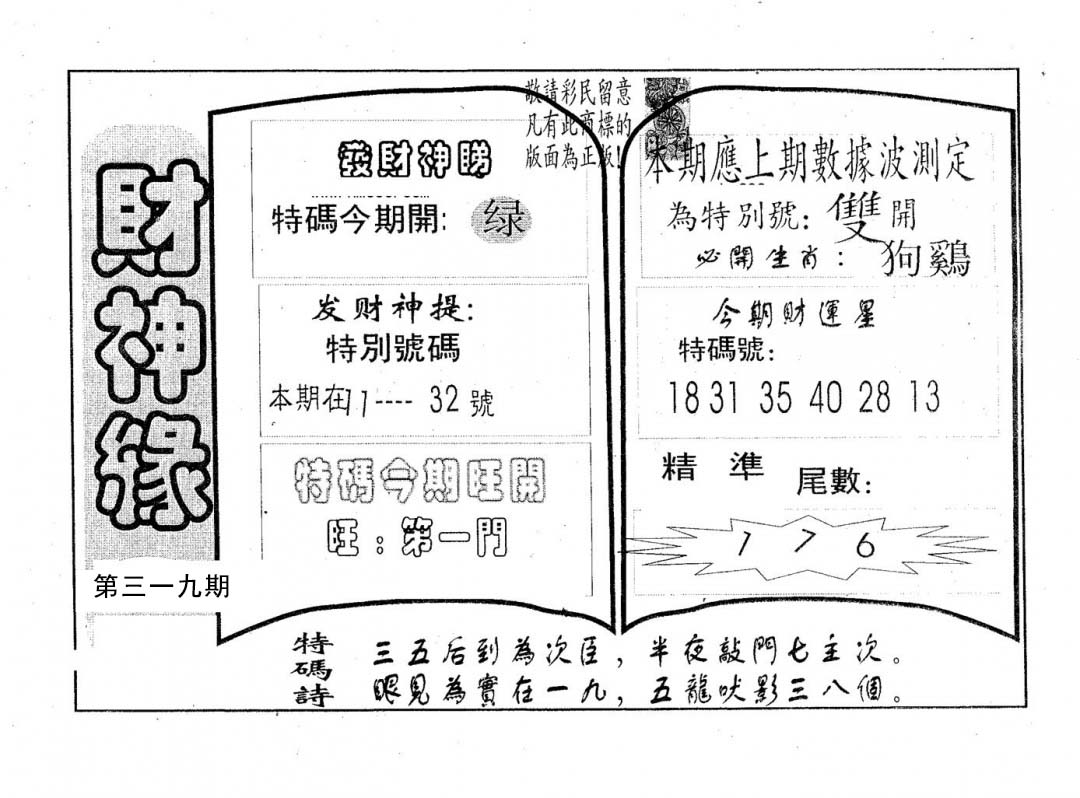 財神緣
第三一九期
敬請彩民留意
凡有此商標的
版面為正版!
發財神睇
特碼今期開: 绿
发财神提:
特別號碼
本期在11----32號
特碼今期旺開
旺:第一門
本期應上期數據波測定
為特別號: 雙開
必開生肖: 狗鷄
今期財運星
特碼號:
18 31 35 40 28 13
精準 尾數:
1 7 6
特碼詩
三五后到為次臣,半夜敲門七主次。
眼見為實在一九,五龍吠影三八個。